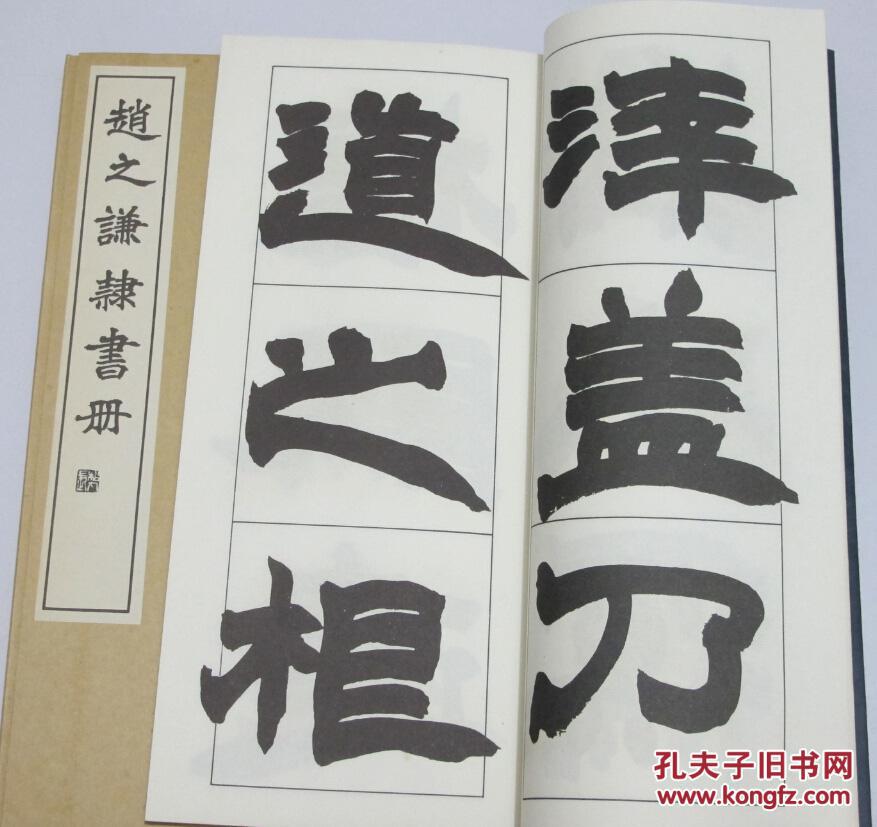 趙之謙隸書冊
涬盖乃
道之根
孔夫子旧书网
www.kongfz.com